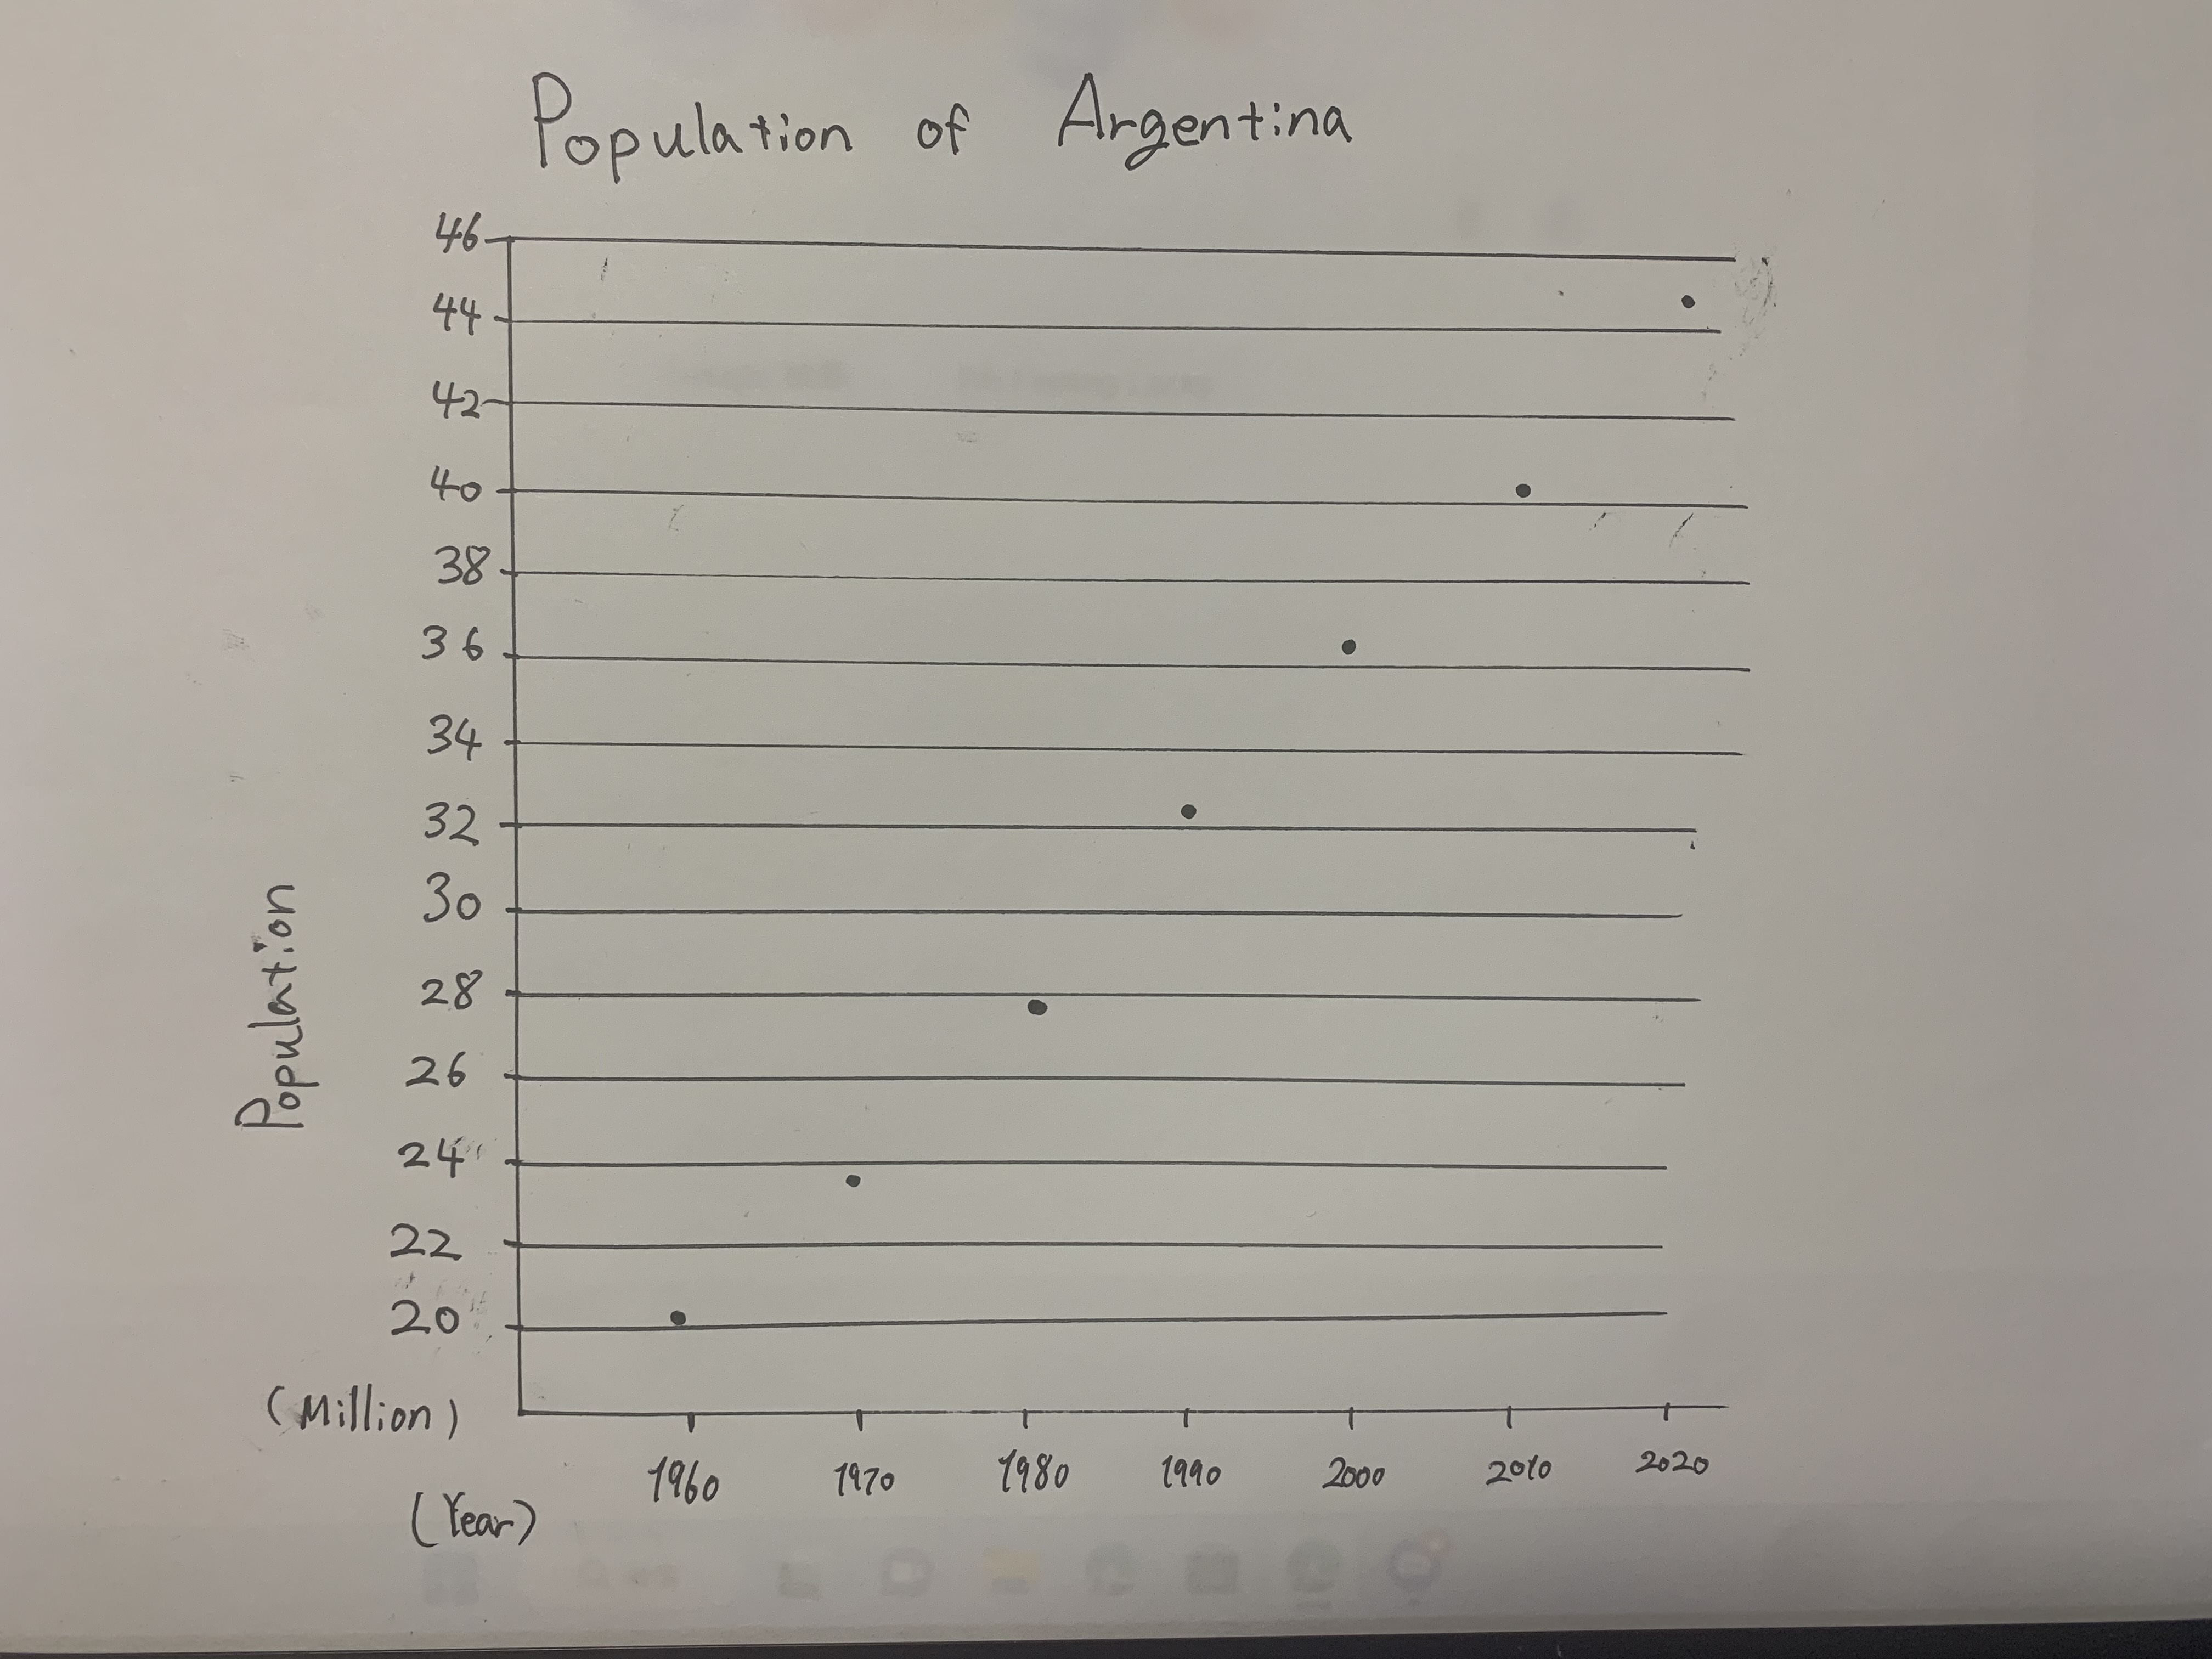 Population of Argentina
46
44
42
40
38
36
34
32
30
28
26
24
22
20
Population
(Million)
1960 1970 1980 1990 2000 2010 2020
(Year)